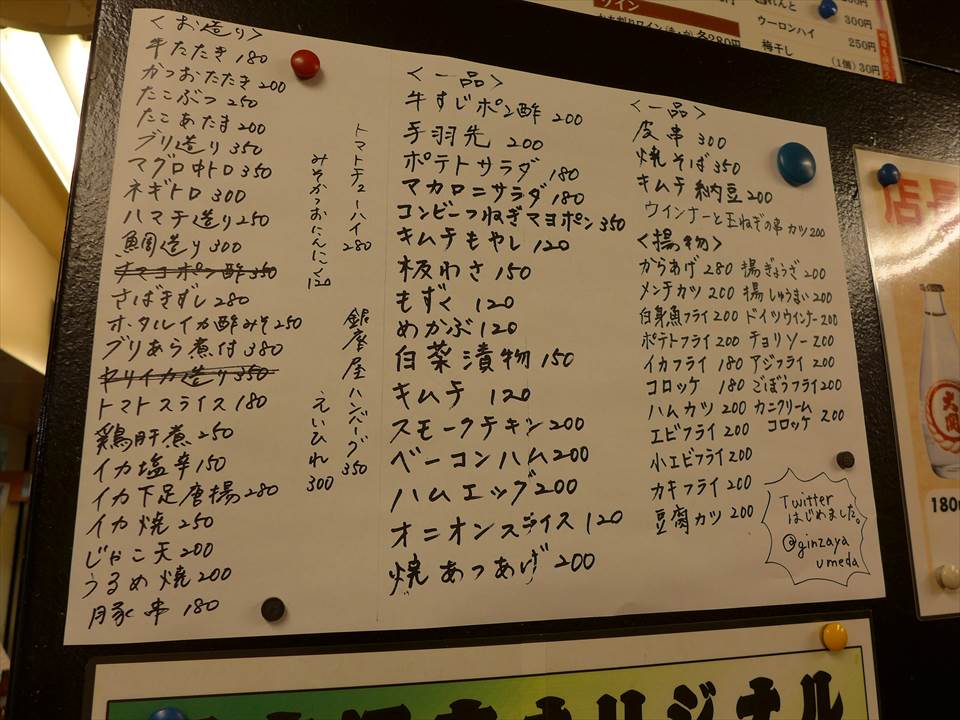 <お造り>
牛たたき 180
かつおたたき 200
たこぶつ 250
たこあたま 200
ブリ造り 350
マグロ中トロ 350
ネギトロ 300
ハマチ造り 250
鯛造り 300
ナマコポン酢 350
さばきずし 280
ホタルイカ酢みそ 250
ブリあら煮付 380
ヤリイカ造り 350
トマトスライス 180
鶏肝煮 250
イカ塩辛 150
イカ下足唐揚 280
イカ焼 250
じゃこ天 200
うるめ焼 200
豚串 180
トマトチューハイ 280
みそかつおにんにく 120
銀座屋ハンバーグ 350
えいひれ 300
<一品>
牛すじポン酢 200
手羽先 200
ポテトサラダ 180
マカロニサラダ 180
コンビーフねぎマヨポン 350
キムチもやし 120
板わさ 150
もずく 120
めかぶ 120
白菜漬物 150
キムチ 120
スモークチキン 200
ベーコンハム 200
ハムエッグ 200
オニオンスライス 120
焼あつあげ 200
<一品>
皮串 300
焼そば 350
キムチ納豆 200
ウインナーと玉ねぎの串カツ 200
<揚物>
からあげ 280 揚ぎょうざ 200
メンチカツ 200 揚しゅうまい 200
白身魚フライ 200 ドイツウインナー 200
ポテトフライ 200 チョリソー 200
イカフライ 180 アジフライ 200
コロッケ 180 ごぼうフライ 200
ハムカツ 200 カニクリーム
コロッケ 200
エビフライ 200
小エビフライ 200
カキフライ 200
豆腐カツ 200
Twitter
はじめました。
@ginzaya
umeda
ワイン
各280円
ウーロンハイ 300円
梅干し 250円
(1個) 30円
店長
大関
180
オリジナル